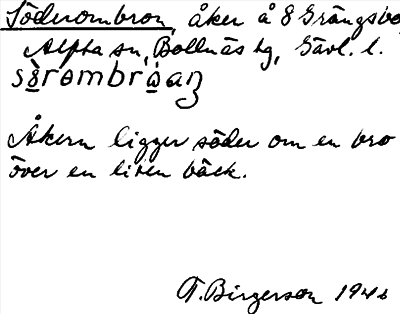 Söderombron, åker å 8 Grängsbo,
Alfta sn, Bollnäs tg, Gävl. l.
Åkern ligger söder om en bro
över en liten bäck.
T. Birgerson